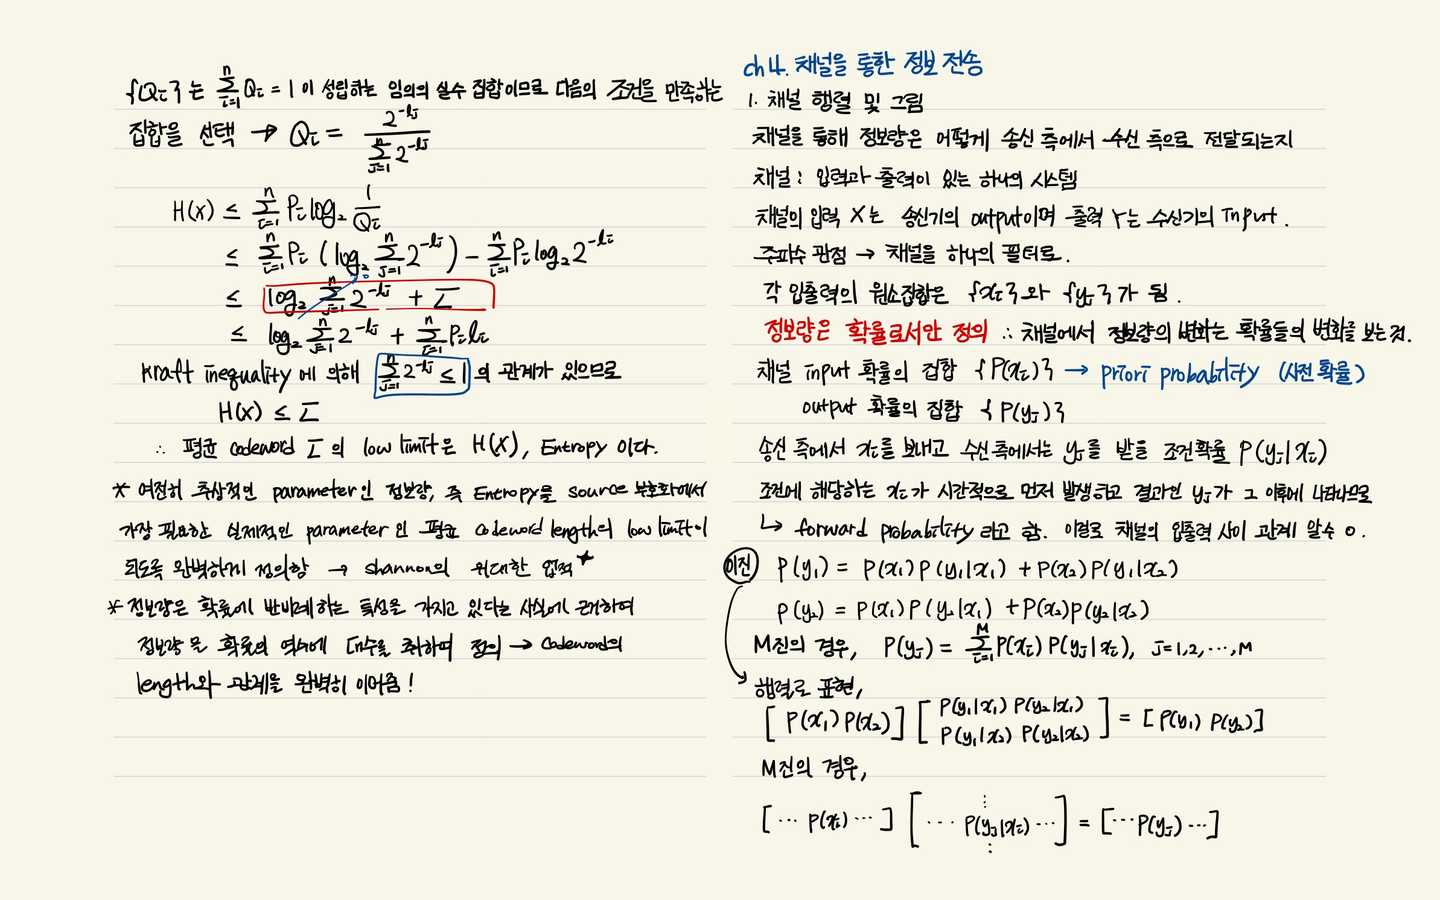 {Qi}는 ∑_{i=1}^{n} Qi = 1 이 성립하는 임의의 실수 집합이므로 다음의 조건을 만족하는
집합을 선택 → Qi = 2^{-lj} / ∑_{j=1}^{n} 2^{-lj}
H(x) ≤ ∑_{i=1}^{n} Pi log₂ 1/Qi
≤ ∑_{i=1}^{n} Pi (log₂ ∑_{j=1}^{n} 2^{-lj}) - ∑_{i=1}^{n} Pi log₂ 2^{-li}
≤ log₂ ∑_{j=1}^{n} 2^{-lj} + L̄
≤ log₂ ∑_{j=1}^{n} 2^{-lj} + ∑_{i=1}^{n} Pi li
kraft inequality 에 의해 ∑_{j=1}^{n} 2^{-lj} ≤ 1 의 관계가 있으므로
H(x) ≤ L̄
∴ 평균 codeword L̄ 의 low limit은 H(x), Entropy 이다.
* 여전히 추상적인 parameter인 정보량, 즉 Entropy를 source 부호화에서
가장 필요한 실제적인 parameter 인 평균 codeword length의 low limit이
되도록 완벽하게 정의함 → shannon의 위대한 업적★
* 정보량은 확률에 반비례하는 특성을 가지고 있다는 사실에 근거하여
정보량을 확률의 역수에 대수를 취하며 정의 → codeword의
length와 관계을 완벽히 이어줌!
ch4. 채널을 통한 정보 전송
1. 채널 행렬 및 그림
채널을 통해 정보량은 어떻게 송신 측에서 수신 측으로 전달되는지
채널 : 입력과 출력이 있는 하나의 시스템
채널의 입력 X는 송신기의 output이며 출력 Y는 수신기의 Input.
주파수 관점 → 채널을 하나의 필터로.
각 입출력의 원소집합은 {xi}와 {yj}가 됨.
정보량은 확률로서만 정의 ∴ 채널에서 정보량의 변화는 확률들의 변화을 보는 것.
채널 input 확률의 집합 {P(xi)} → priori probability (사전 확률)
output 확률의 집합 {P(yj)}
송신 측에서 xi를 보내고 수신 측에서는 yj를 받을 조건확률 P(yj|xi)
조건에 해당하는 xi가 시간적으로 먼저 발생하고 결과인 yj가 그 이후에 나타나므로
↳ forward probability 라고 함. 이걸로 채널의 입출력 사이 관계 알수 o.
이진 P(y₁) = P(x₁)P(y₁|x₁) + P(x₂)P(y₁|x₂)
P(y₂) = P(x₁)P(y₂|x₁) + P(x₂)P(y₂|x₂)
M진의 경우, P(yj) = ∑_{i=1}^{M} P(xi) P(yj|xi), j=1,2,⋯,M
행렬로 표현,
[P(x₁) P(x₂)] [P(y₁|x₁) P(y₂|x₁)
P(y₁|x₂) P(y₂|x₂)] = [P(y₁) P(y₂)]
M진의 경우,
⋮
[⋯ P(xi) ⋯] [⋯ P(yj|xi) ⋯] = [⋯ P(yj) ⋯]
⋮